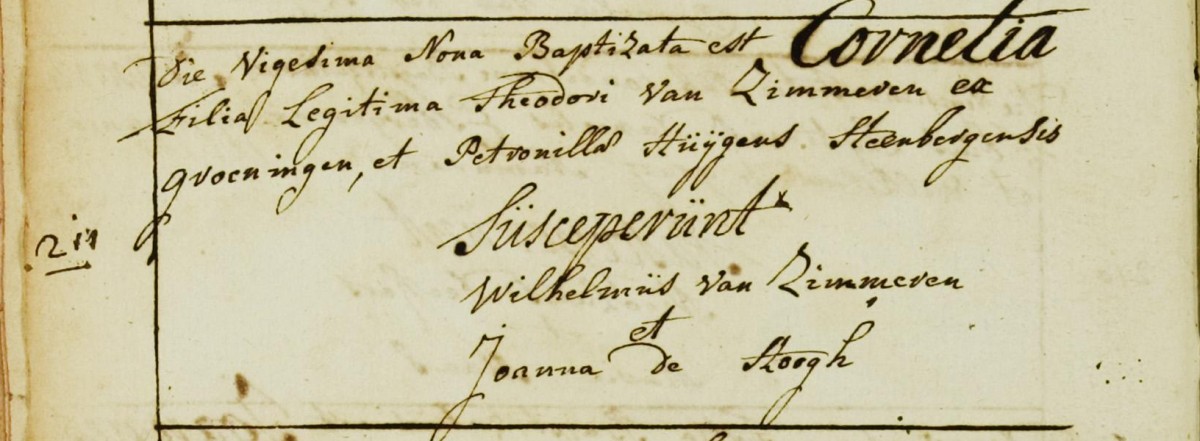 Die Vigesima Nona Baptizata est Cornelia
Filia Legitima Theodori Van Zimmeren ex
groeningen, et Petronilla Hüÿgens Steenbergensis
Süsceperünt
Wilhelmüs Van Zimmeren
et
Joanna de Hoogh